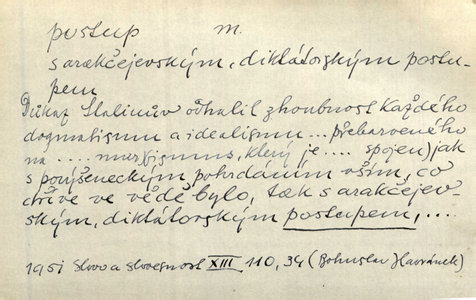 postup m.
s arakčejevským, diktátorským postu-
pem
Důkaz Stalinův odhalil zhoubnost každého
dogmatismu a idealismu ... přebarveného
na .... marxismus, který je .... spojen) jak
s povýšeneckým pohrdáním vším, co
dříve ve vědě bylo, tak s arakčejev-
ským, diktátorským postupem, ....
1951 Slovo a slovesnost XIII 110, 34 (Bohuslav Havránek)